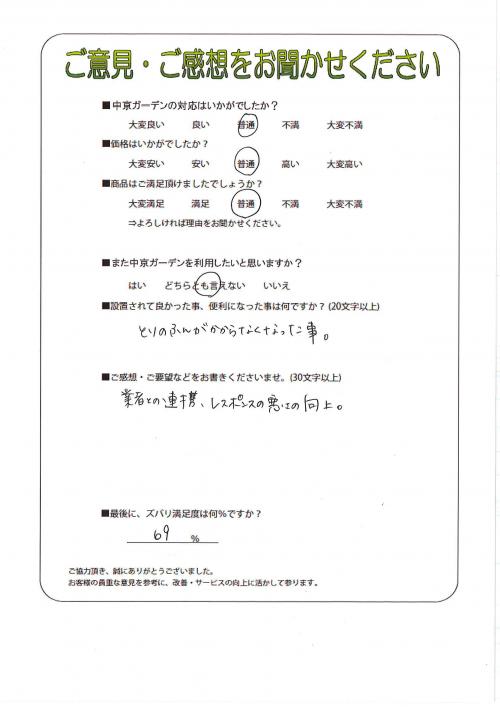 ご意見・ご感想をお聞かせください
■中京ガーデンの対応はいかがでしたか？
大変良い 良い 普通 不満 大変不満
■価格はいかがでしたか？
大変安い 安い 普通 高い 大変高い
■商品はご満足頂けましたでしょうか？
大変満足 満足 普通 不満 大変不満
⇒よろしければ理由をお聞かせください。
■また中京ガーデンを利用したいと思いますか？
はい どちらとも言えない いいえ
■設置されて良かった事、便利になった事は何ですか？(20文字以上)
とりのふんがかからなくなった事。
■ご感想・ご要望などをお書きくださいませ。(30文字以上)
業者との連携、レスポンスの悪さの向上。
■最後に、ズバリ満足度は何%ですか？
69 %
ご協力頂き、誠にありがとうございました。
お客様の貴重な意見を参考に、改善・サービスの向上に活かして参ります。